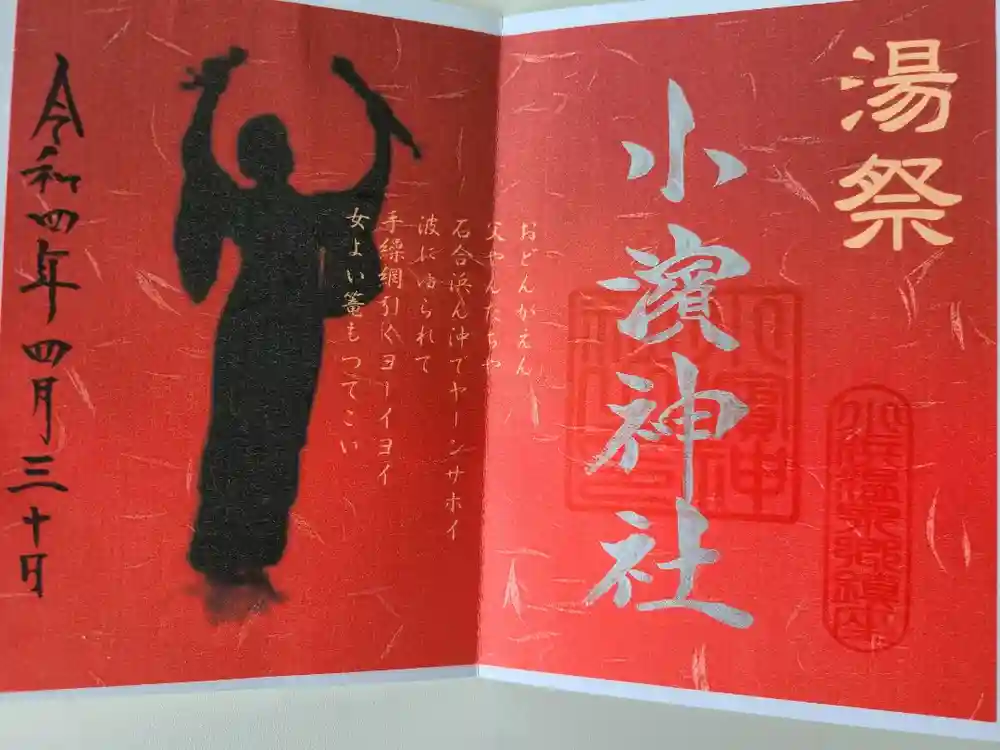 湯祭
小濱神社
おどんがえん
父やんたちゃ
石合浜ん沖でヤーンサホイ
波にゆられて
手繰網引くヨーイヨイ
女よい篭もつてこい
令和四年四月三十日